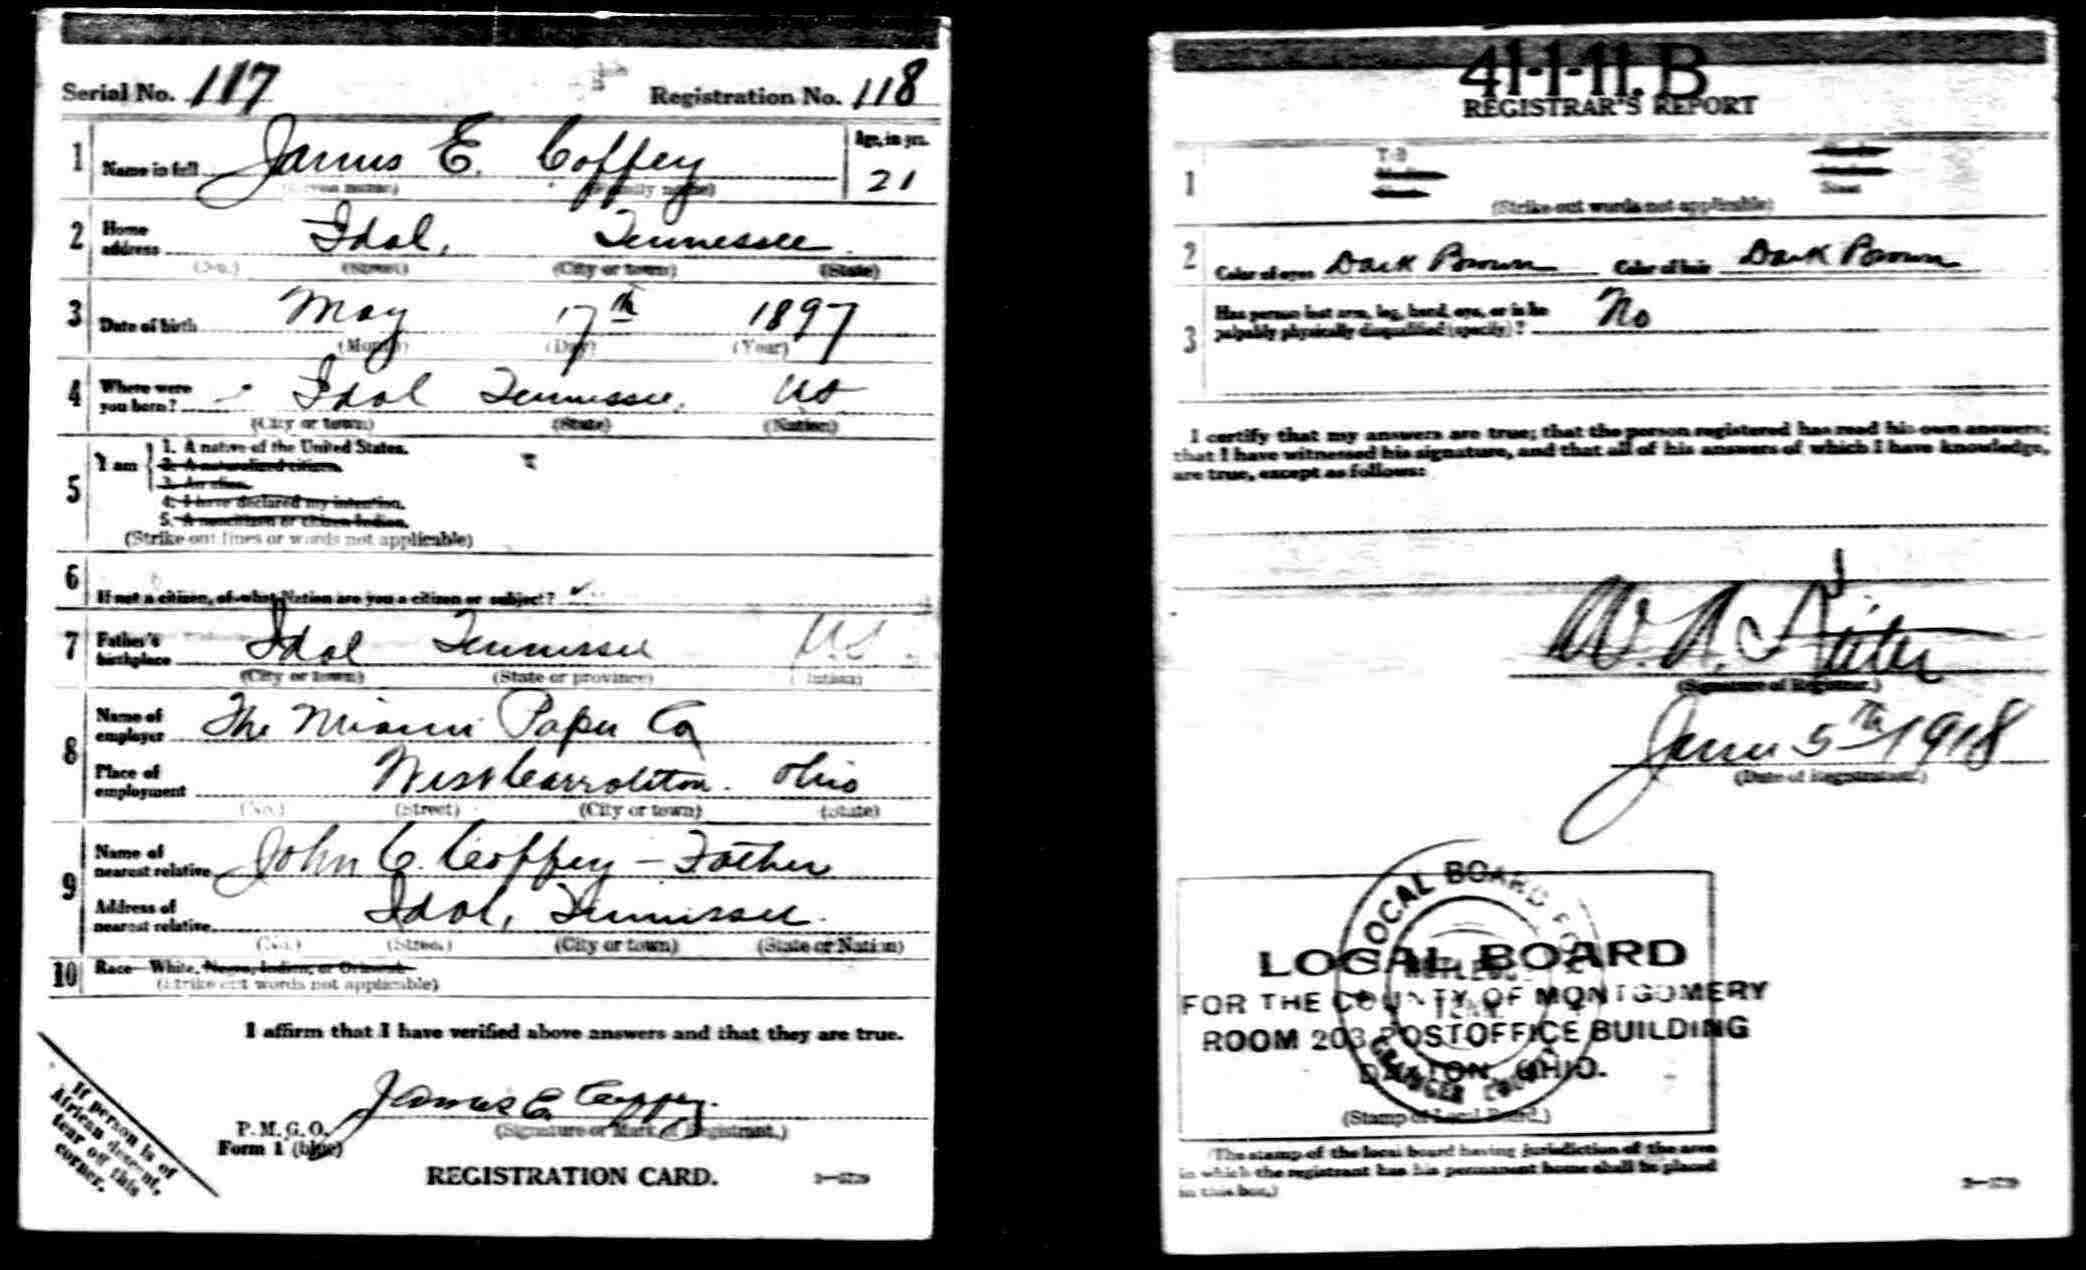 Serial No. 117 Registration No. 118
1 Name in full James E. Coffey Age, in yrs. 21
(Given name) (Family name)
2 Home address Idol, Tennessee
(No.) (Street) (City or town) (State)
3 Date of birth May 17th 1897
(Month) (Day) (Year)
4 Where were you born? Idol Tennessee, US
(City or town) (State) (Nation)
5 I am
1. A native of the United States.
2. A naturalized citizen.
3. An alien.
4. I have declared my intention.
5. A noncitizen or citizen Indian.
(Strike out lines or words not applicable)
6 If not a citizen, of what Nation are you a citizen or subject?
7 Father's birthplace Idol Tennessee U.S.
(City or town) (State or province) (Nation)
8 Name of employer The Miami Paper Co
Place of employment West Carrollton. Ohio
(No.) (Street) (City or town) (State)
9 Name of nearest relative John C. Coffey - Father
Address of nearest relative Idol, Tennessee.
(No.) (Street) (City or town) (State or Nation)
10 Race—White, Negro, Indian, or Oriental.
(Strike out words not applicable)
I affirm that I have verified above answers and that they are true.
James E Coffey.
P. M. G. O. (Signature or Mark of Registrant.)
Form 1 (blue)
REGISTRATION CARD.
If person is of
African descent,
tear off this
corner.
41-1-11. B
REGISTRAR'S REPORT
1
(Strike out words not applicable)
2 Color of eyes Dark Brown Color of hair Dark Brown
3 Has person lost arm, leg, hand, eye, or is he
palpably physically disqualified (specify)? No
I certify that my answers are true; that the person registered has read his own answers;
that I have witnessed his signature, and that all of his answers of which I have knowledge,
are true, except as follows:
W. A.
(Signature of Registrar.)
June 5th 1918
(Date of Registration.)
LOCAL BOARD FOR
GRAINGER COUNTY
RUTLEDGE
TENN.
LOCAL BOARD
FOR THE COUNTY OF MONTGOMERY
ROOM 203 POSTOFFICE BUILDING
DAYTON, OHIO.
(Stamp of Local Board.)
(The stamp of the local board having jurisdiction of the area
in which the registrant has his permanent home shall be placed
in this box.)